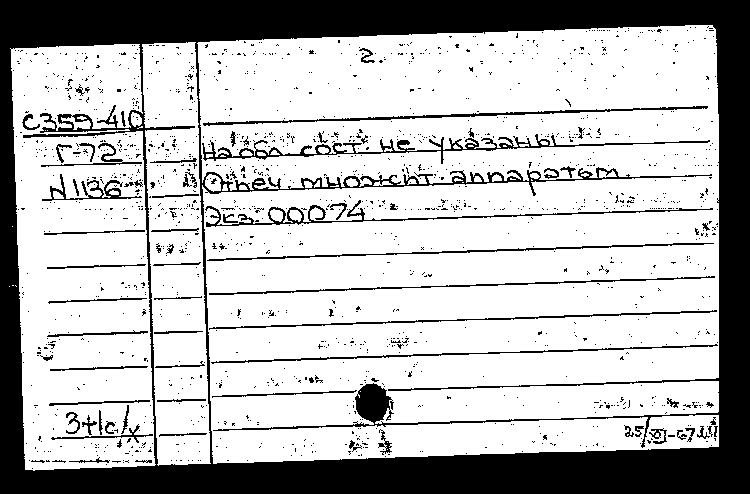 2.
С359-410
Г-72 На обл сост. не указаны.
N1136 Отпеч. множит. аппаратом.
Экз. 00074
3+1с/х
25/XI-67